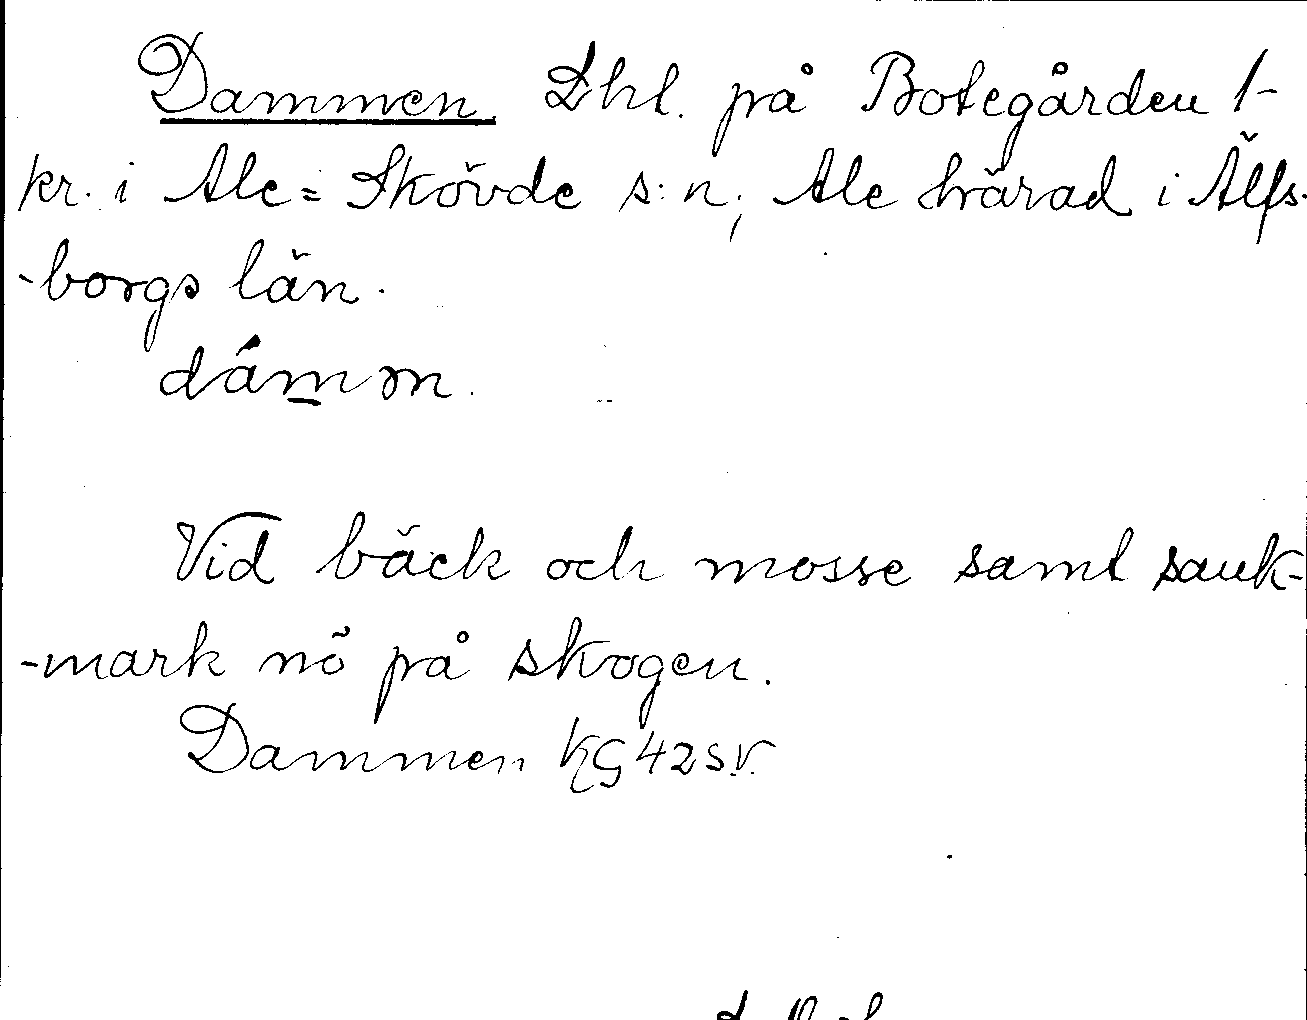 Dammen. Lht. på Botegården 1-
kr. i Ale=Skövde s:n; Ale härad i Älfs-
-borgs län.
dámm.
Vid bäck och mosse samt sank-
-mark nö på skogen.
Dammen KG 42 SV.